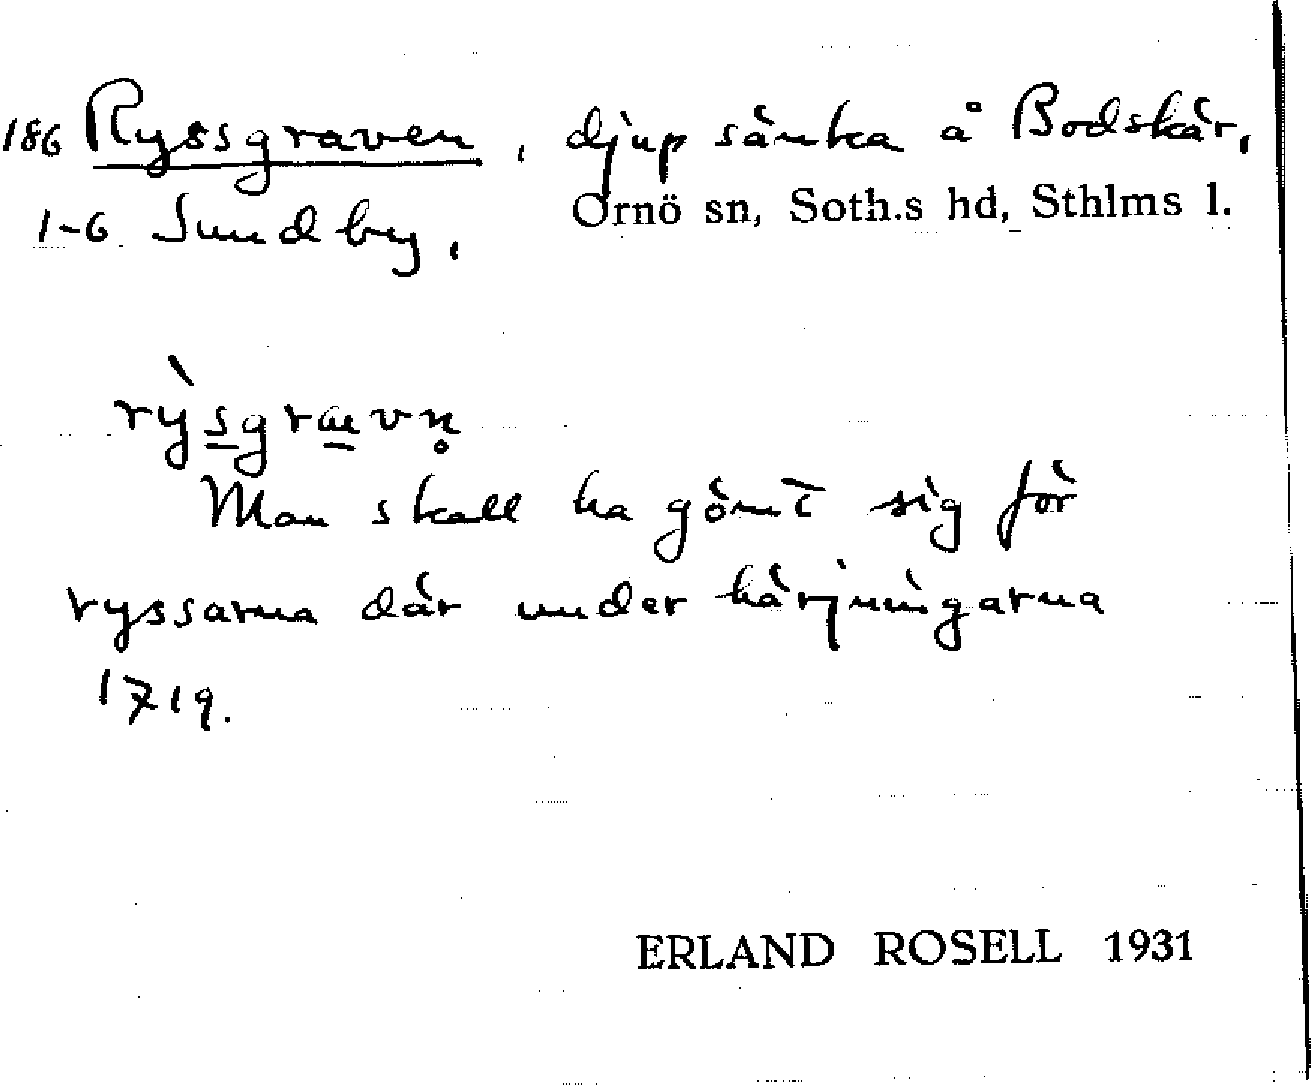 186 Ryssgraven, djup sänka å Bodskär,
1-6 Sundby, Ornö sn, Soth.s hd, Sthlms l.
rỳsgrævn̥
Man skall ha gömt sig för
ryssarna där under härjningarna
1719.
ERLAND ROSELL 1931